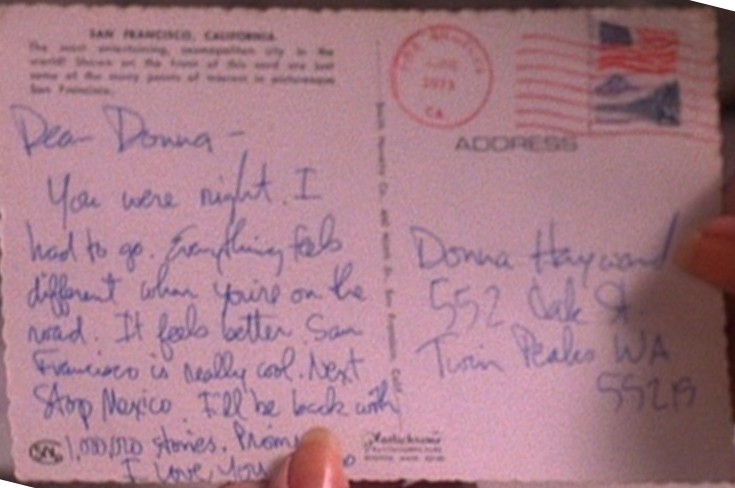 SAN FRANCISCO, CALIFORNIA
The most entertaining, cosmopolitan city in the
world! Shown on the front of this card are just
some of the many points of interest in picturesque
San Francisco.
Dear Donna -
You were right. I
had to go. Everything feels
different when you're on the
road. It feels better. San
Francisco is really cool. Next
Stop Mexico. I'll be back with
1,000,000 stories.
I love you
CA
ADDRESS
Donna Hayward
552 Oak St.
Twin Peaks WA